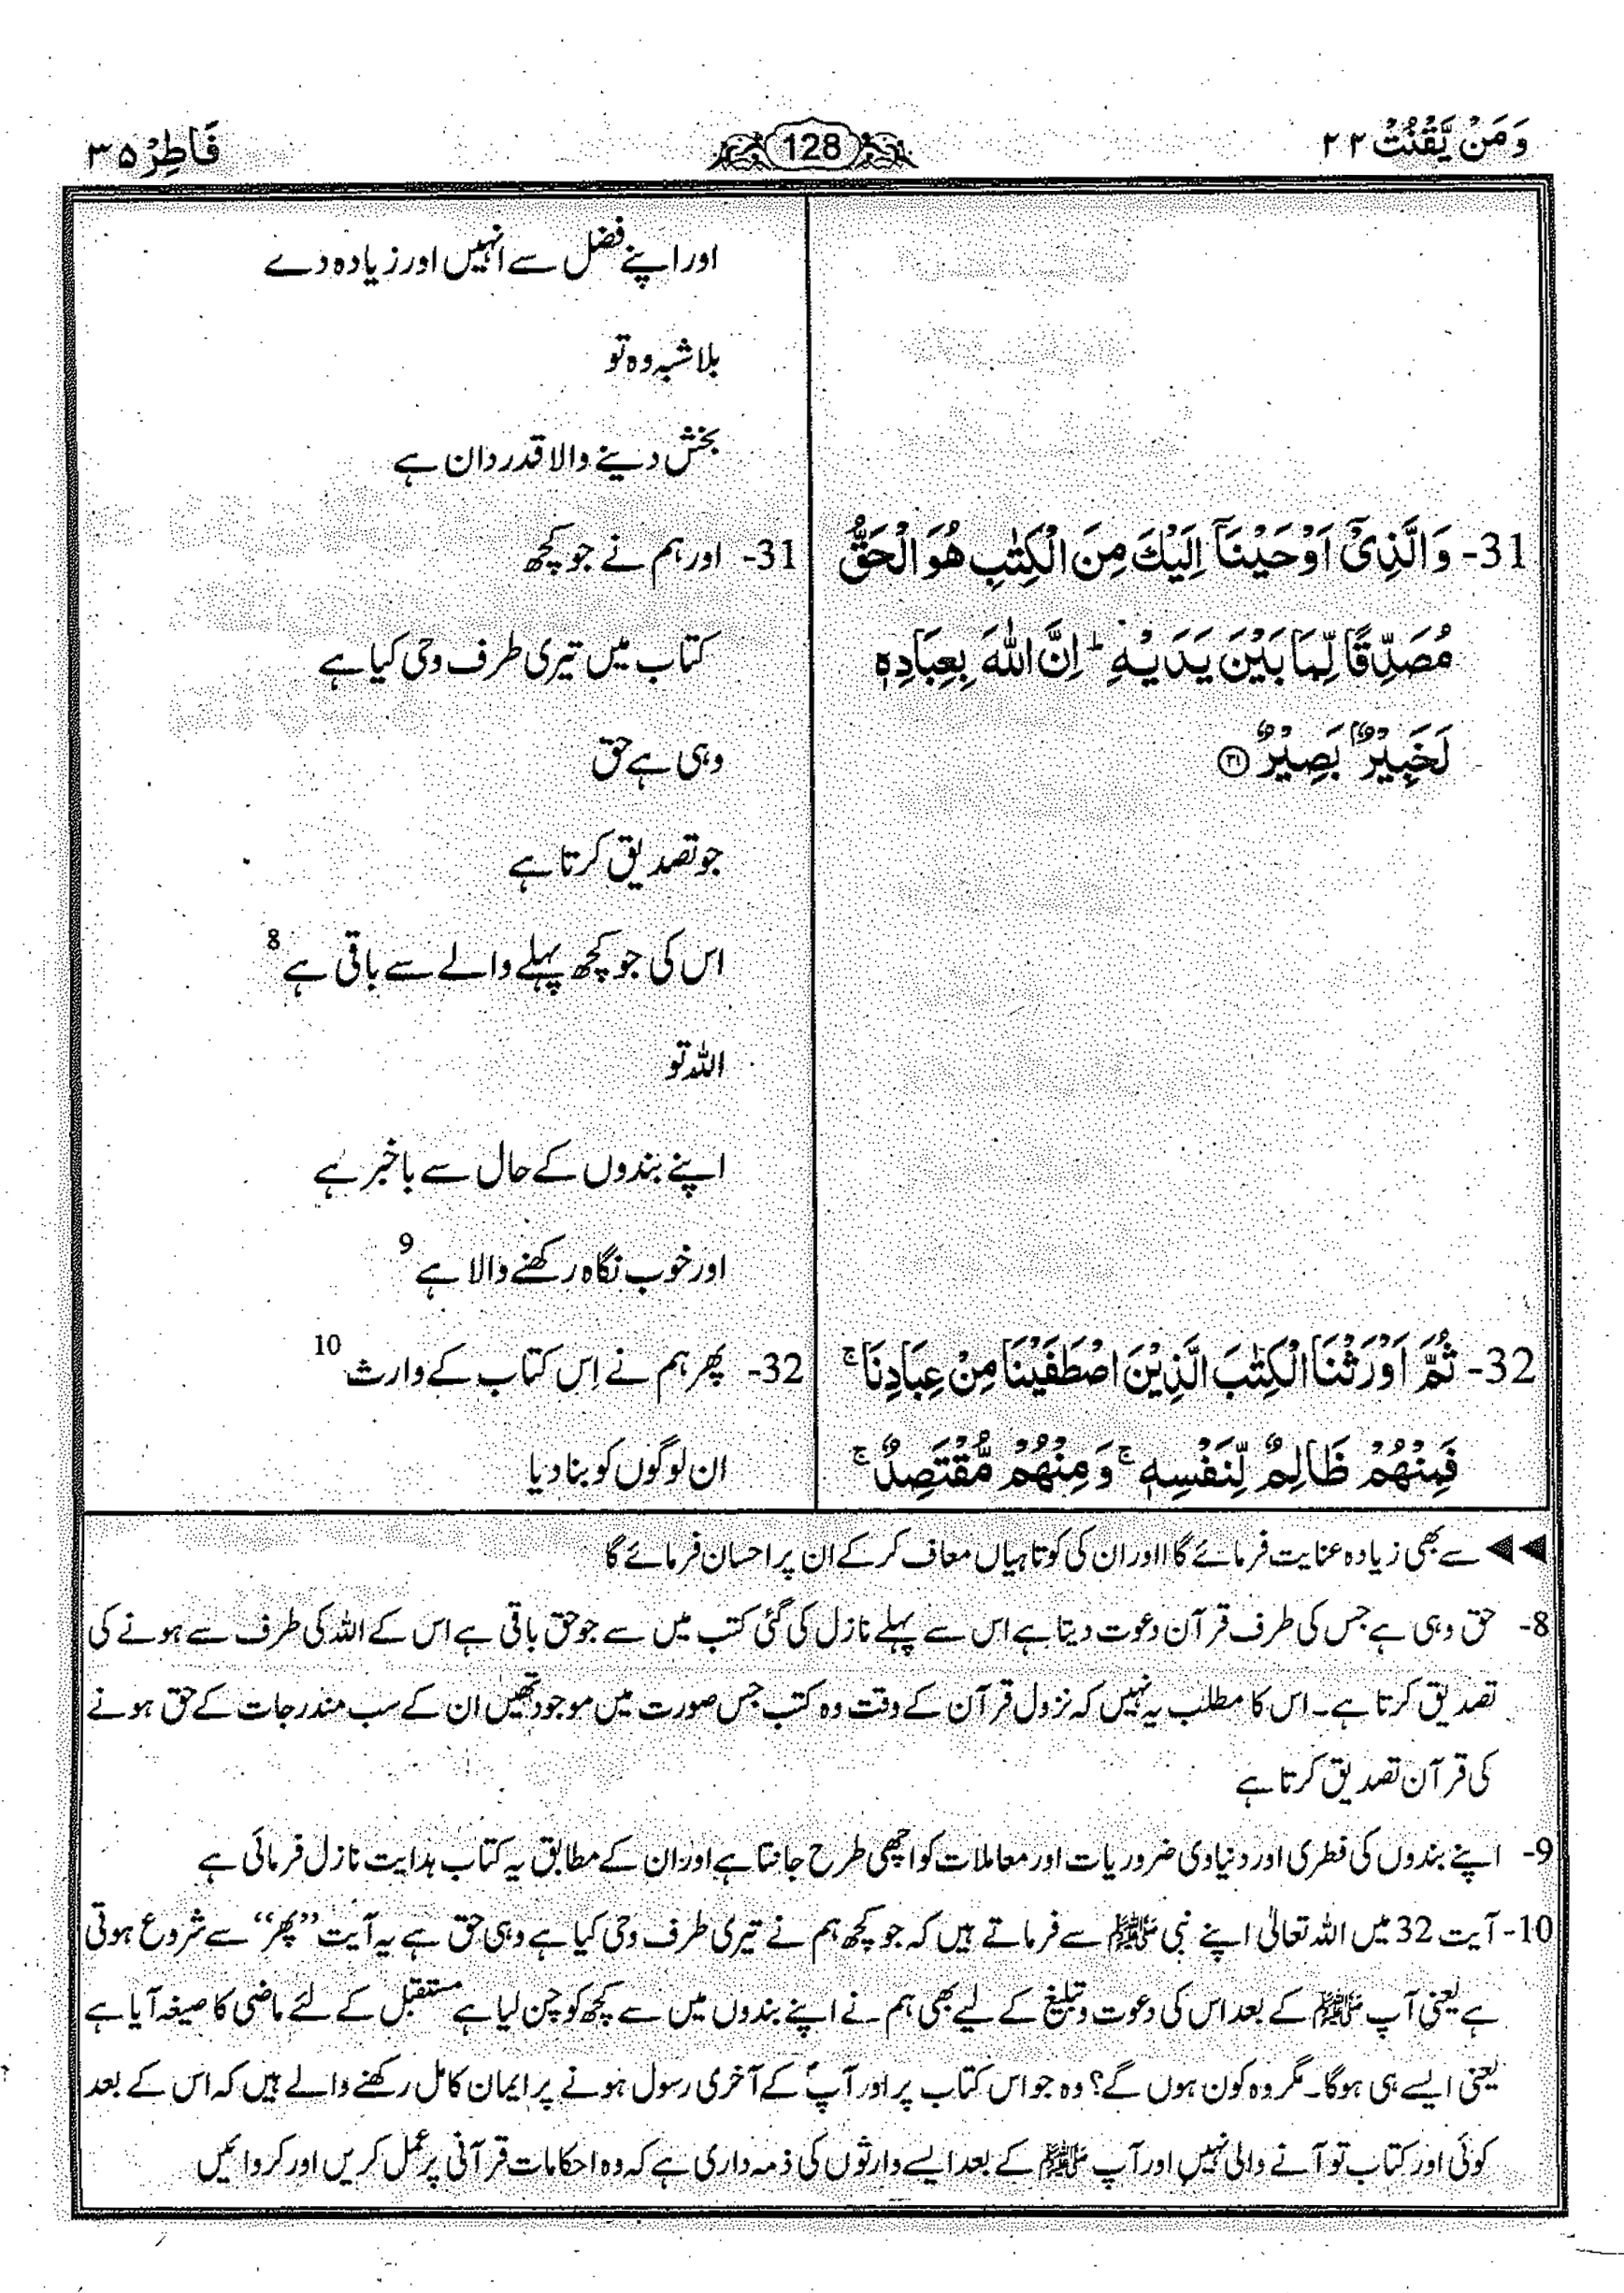 وَمَنْ يَّقْنُتْ ٢٢
128
فَاطِرْ ٣٥
اور اپنے فضل سے انہیں اور زیادہ دے
بلاشبہ وہ تو
بخش دینے والا قدردان ہے
31- وَالَّذِيْٓ اَوْحَيْنَآ اِلَيْكَ مِنَ الْكِتٰبِ هُوَ الْحَقُّ
مُصَدِّقًا لِّمَا بَيْنَ يَدَيْهِ ؕ اِنَّ اللّٰهَ بِعِبَادِهٖ
لَخَبِيْرٌۢ بَصِيْرٌ ﴿٣١﴾
31- اور ہم نے جو کچھ
کتاب میں تیری طرف وحی کیا ہے
وہی ہے حق
جو تصدیق کرتا ہے
اس کی جو کچھ پہلے والے سے باقی ہے 8
اللہ تو
اپنے بندوں کے حال سے باخبر ہے
اور خوب نگاہ رکھنے والا ہے 9
32- ثُمَّ اَوْرَثْنَا الْكِتٰبَ الَّذِيْنَ اصْطَفَيْنَا مِنْ عِبَادِنَا ۚ
فَمِنْهُمْ ظَالِمٌ لِّنَفْسِهٖ ۚ وَمِنْهُمْ مُّقْتَصِدٌ ۚ
32- پھر ہم نے اِس کتاب کے وارث 10
ان لوگوں کو بنا دیا
◀◀ سے بھی زیادہ عنایت فرمائے گا اور ان کی کوتاہیاں معاف کر کے ان پر احسان فرمائے گا
8- حق وہی ہے جس کی طرف قرآن دعوت دیتا ہے اس سے پہلے نازل کی گئی کتب میں سے جو حق باقی ہے اس کے اللہ کی طرف سے ہونے کی
تصدیق کرتا ہے۔ اس کا مطلب یہ نہیں کہ نزول قرآن کے وقت وہ کتب جس صورت میں موجود تھیں ان کے سب مندرجات کے حق ہونے
کی قرآن تصدیق کرتا ہے
9- اپنے بندوں کی فطری اور دنیاوی ضروریات اور معاملات کو اچھی طرح جانتا ہے اور ان کے مطابق یہ کتاب ہدایت نازل فرمائی ہے
10- آیت 32 میں اللہ تعالیٰ اپنے نبی ﷺ سے فرماتے ہیں کہ جو کچھ ہم نے تیری طرف وحی کیا ہے وہی حق ہے یہ آیت ”پھر“ سے شروع ہوتی
ہے یعنی آپ ﷺ کے بعد اس کی دعوت و تبلیغ کے لیے بھی ہم نے اپنے بندوں میں سے کچھ کو چن لیا ہے مستقبل کے لئے ماضی کا صیغہ آیا ہے
یعنی ایسے ہی ہوگا۔ مگر وہ کون ہوں گے؟ وہ جو اس کتاب پر اور آپؐ کے آخری رسول ہونے پر ایمان کامل رکھنے والے ہیں کہ اس کے بعد
کوئی اور کتاب تو آنے والی نہیں اور آپ ﷺ کے بعد ایسے وارثوں کی ذمہ داری ہے کہ وہ احکامات قرآنی پر عمل کریں اور کروائیں